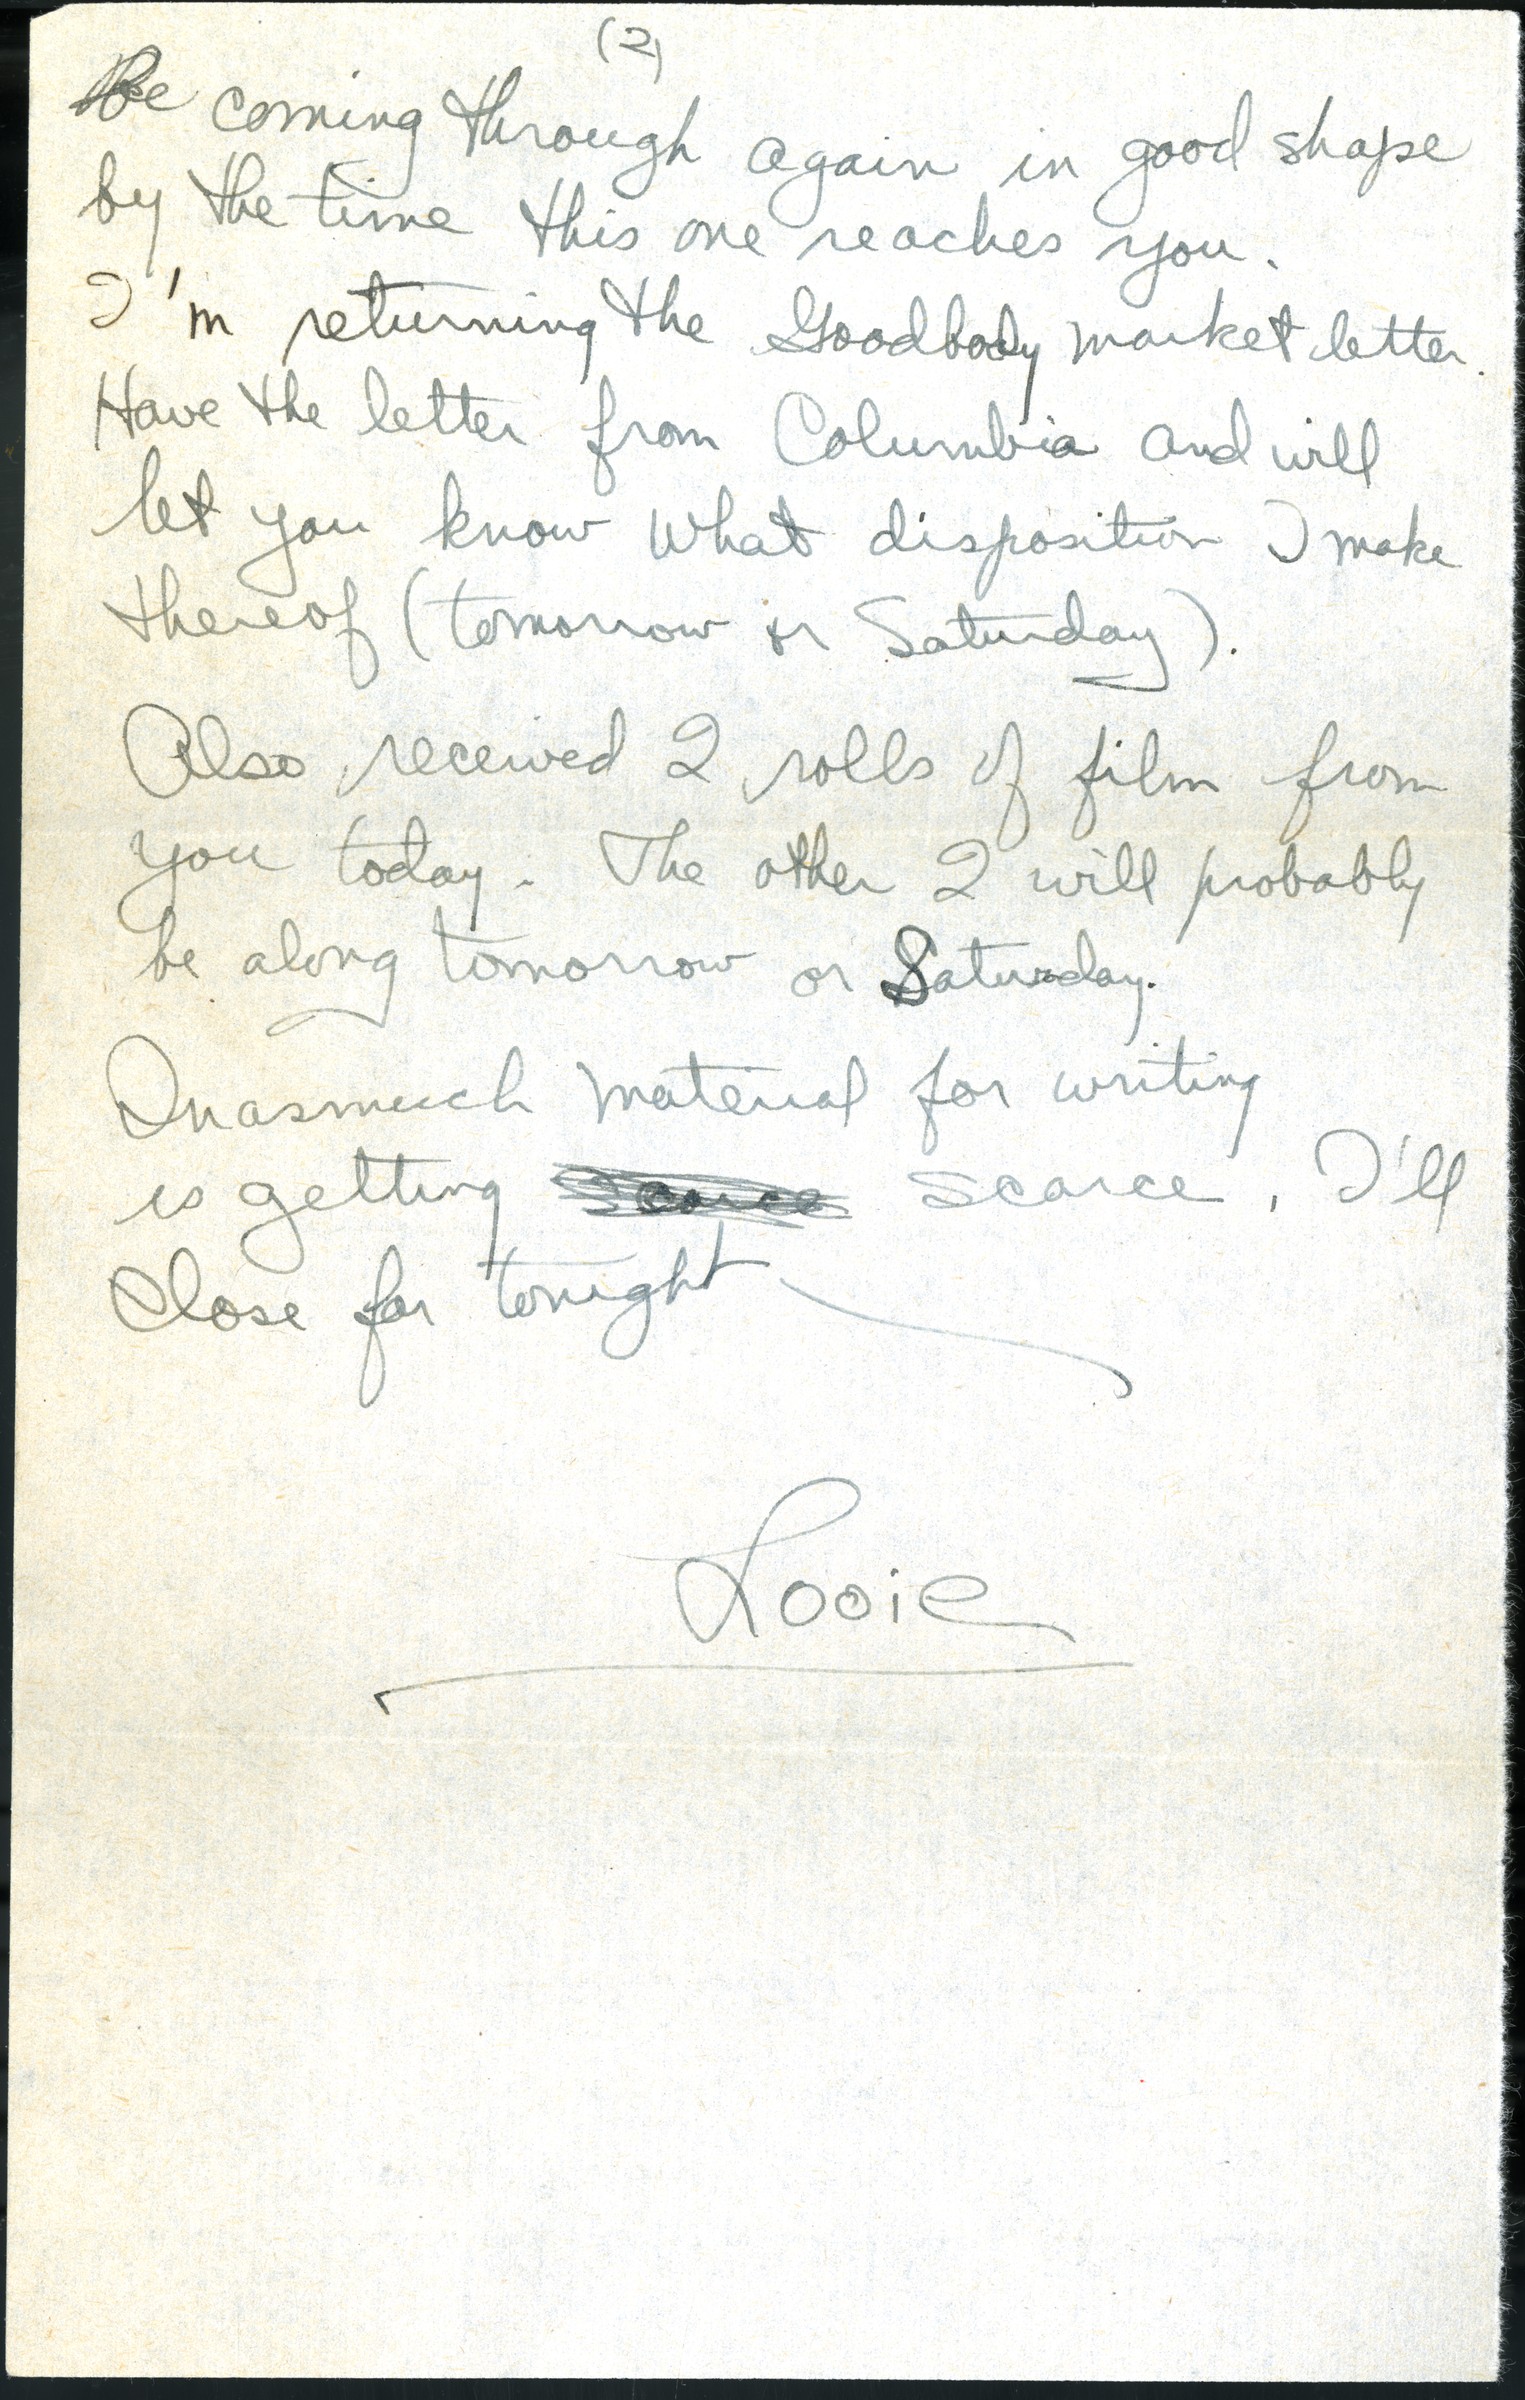 (2)
Be coming through again in good shape
by the time this one reaches you.
I'm returning the Goodbody market letter.
Have the letter from Columbia and will
let you know what disposition I make
thereof (tomorrow or Saturday).
Also received 2 rolls of film from
you today. The other 2 will probably
be along tomorrow or Saturday.
Inasmuch material for writing
is getting scarce scarce, I'll
close for tonight
Looie